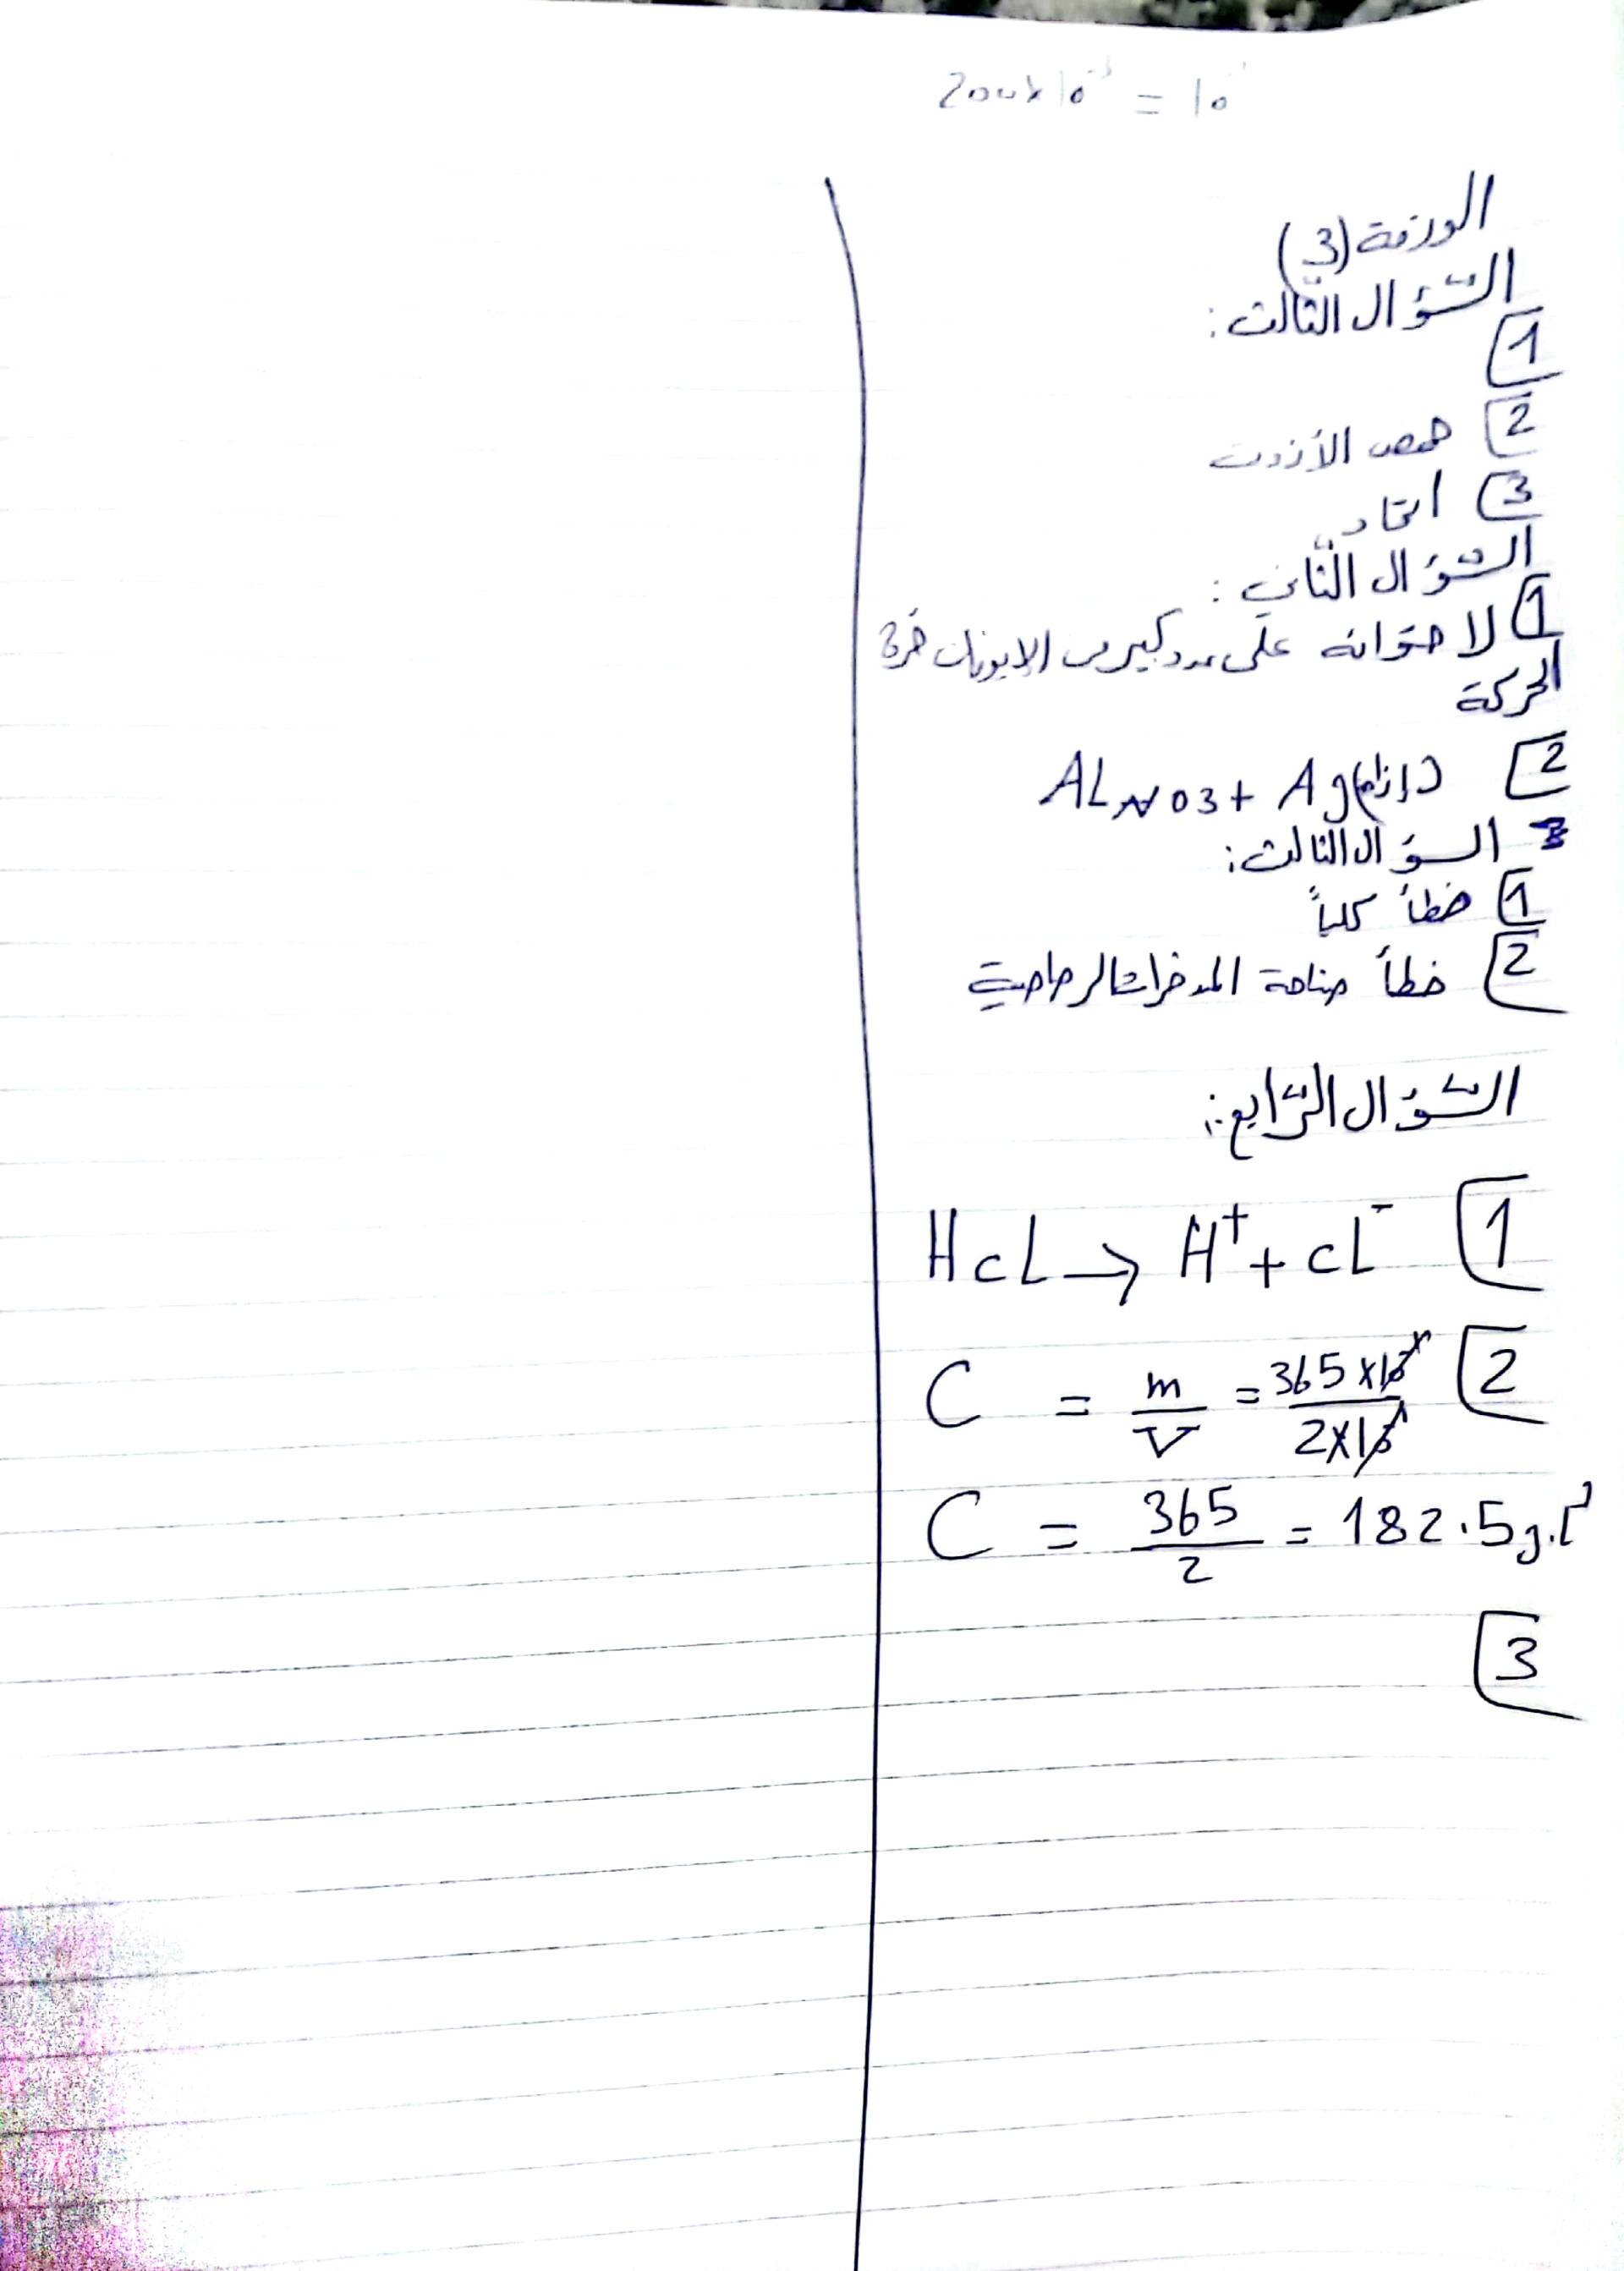 200×10⁻³ = 10⁻¹
الورقة (3)
السّؤال الثّالث:
1
2 حمض الأزوت
3 اتحاد
السّؤال الثّاني:
1 لاحتوائه على عدد كبير من الايونات حرة
الحركة
2 ALNO3 + Ag
3 السؤال الثالث:
1 خطأ كلياً
2 خطأ صناعة المدخرات الرصاصية
السّؤال الرّابع:
1 HCL → H⁺ + CL⁻
2 C = m/V = 365×10 / 2×10
C = 365/2 = 182.5 g.L⁻¹
3